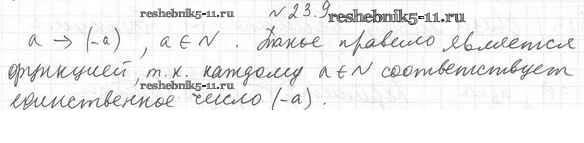 №23.9
reshebnik5-11.ru reshebnik5-11.ru
a → (-a), a ∈ N. Такое правило является
функцией, т.к. каждому a ∈ N соответствует
reshebnik5-11.ru
единственное число (-a).